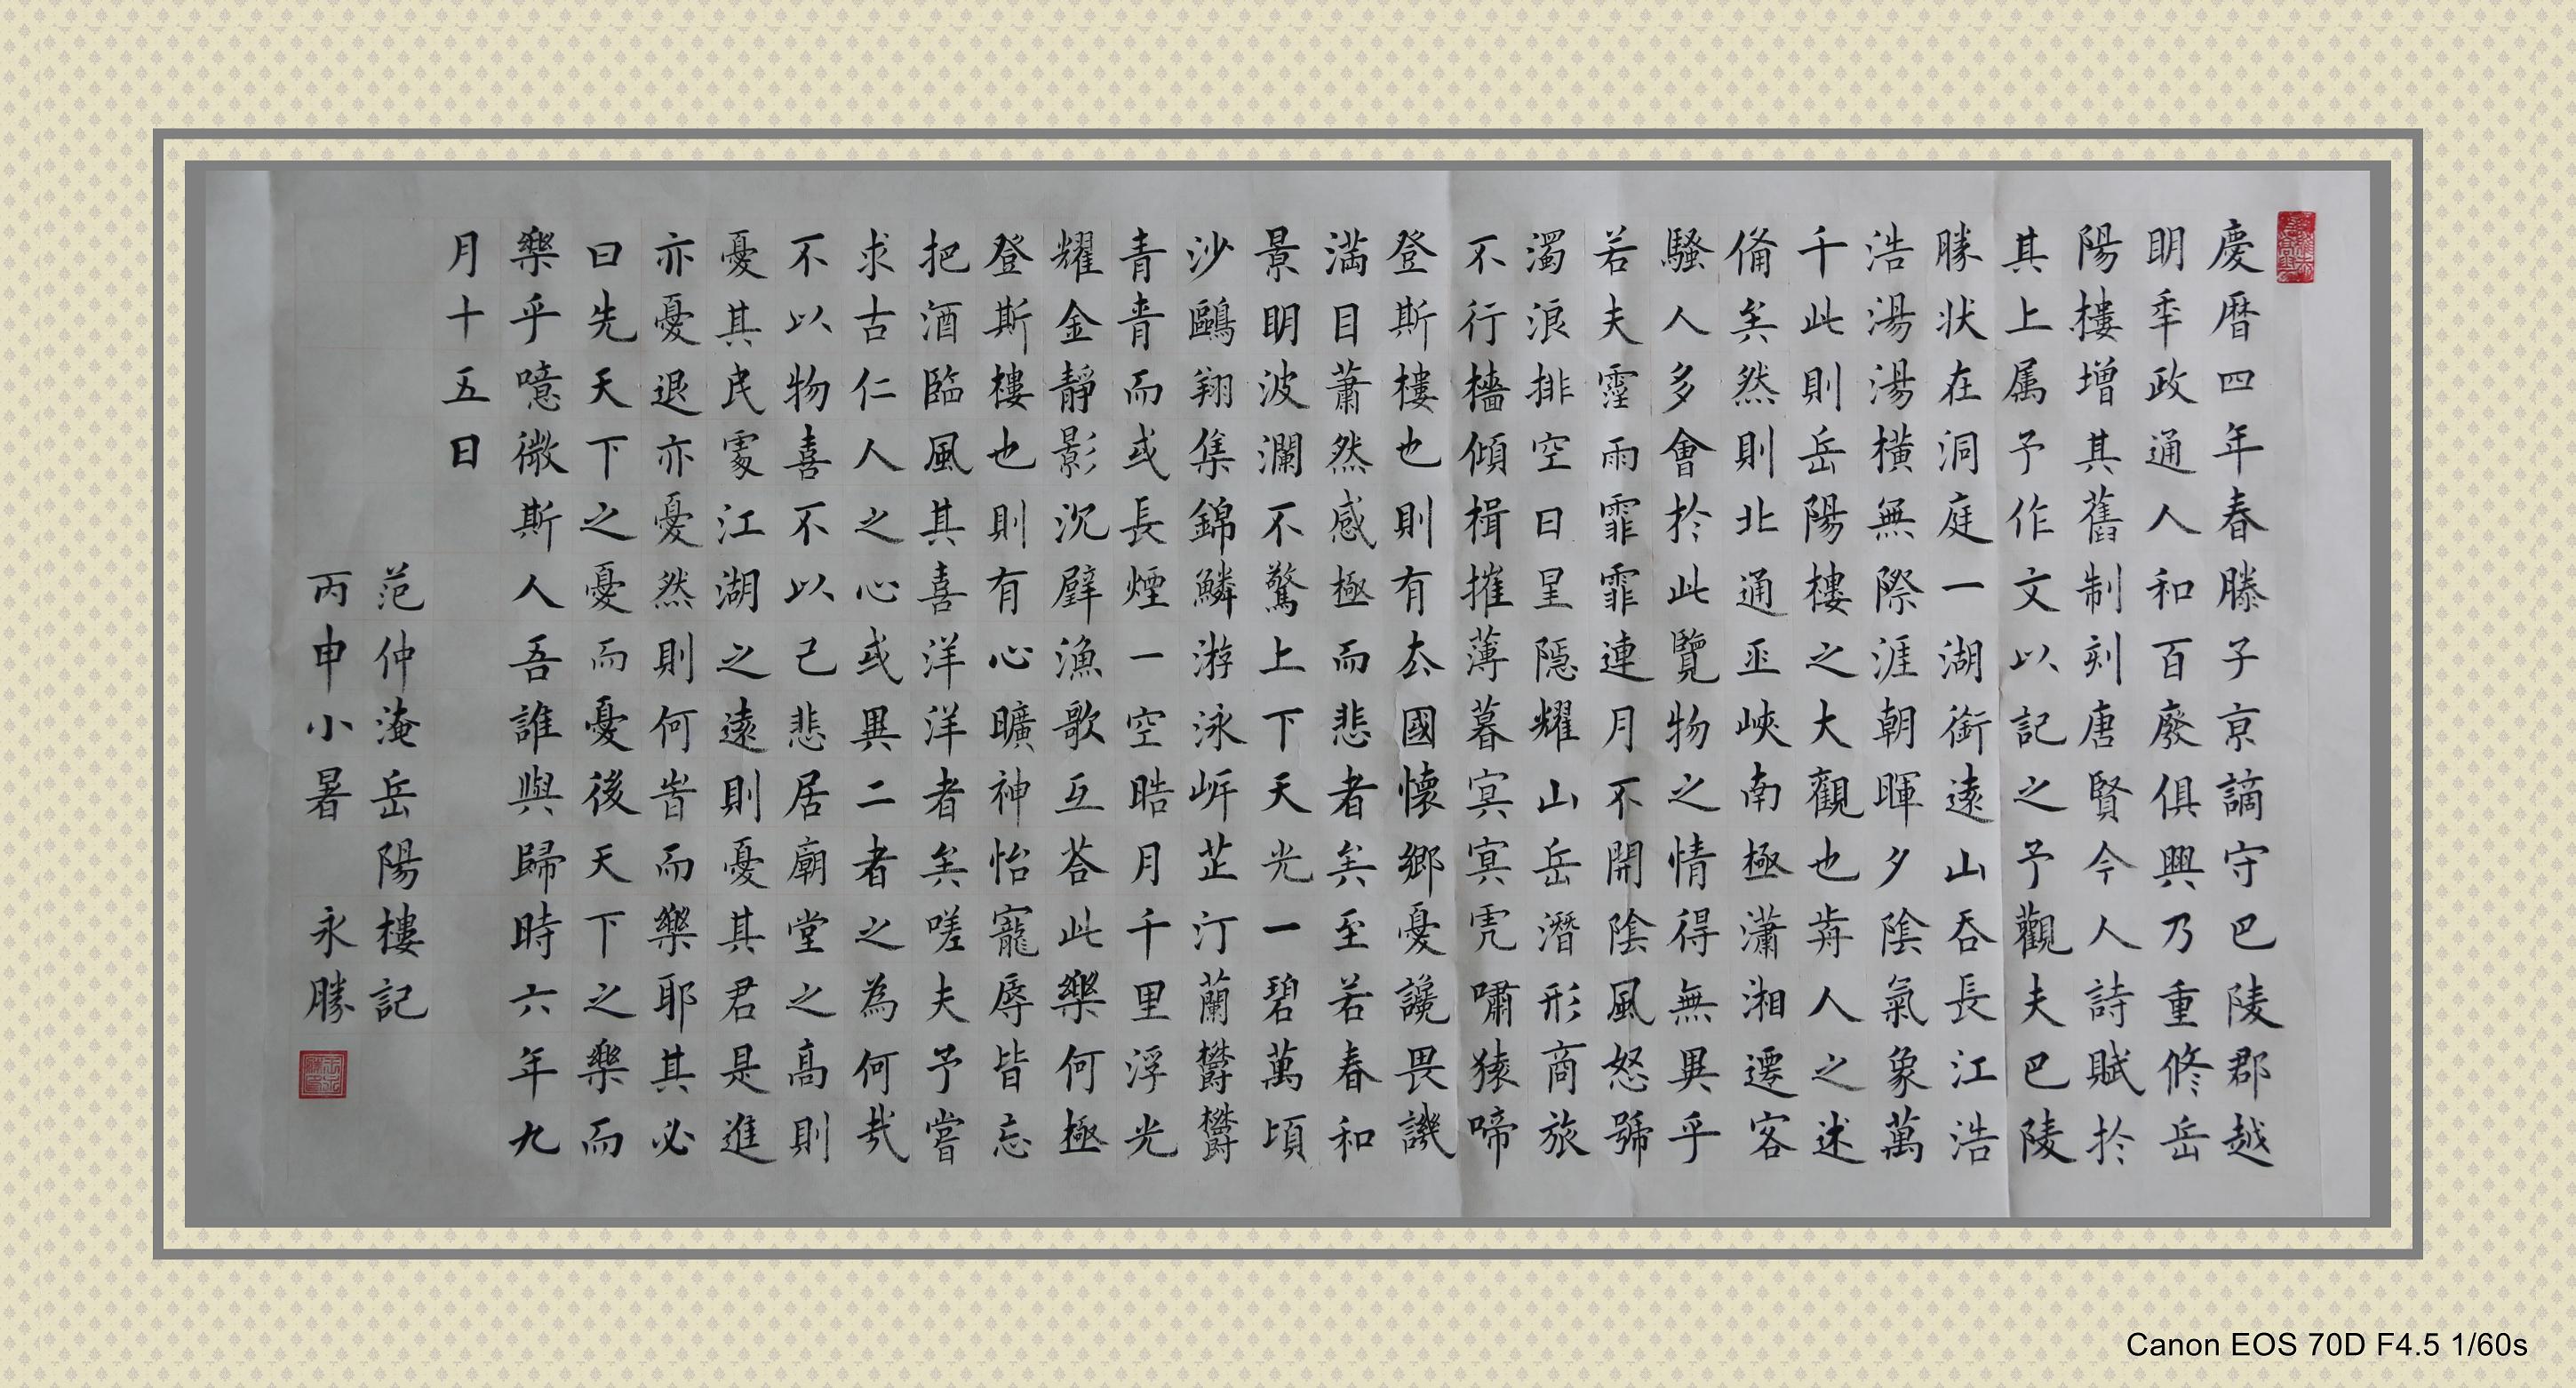 慶暦四年春滕子京謫守巴陵郡越
明年政通人和百廢俱興乃重修岳
陽樓增其舊制刻唐賢今人詩賦於
其上属予作文以記之予觀夫巴陵
勝状在洞庭一湖銜遠山吞長江浩
浩湯湯橫無際涯朝暉夕陰氣象萬
千此則岳陽樓之大觀也前人之述
備矣然則北通巫峽南極瀟湘遷客
騷人多會於此覽物之情得無異乎
若夫霪雨霏霏連月不開陰風怒號
濁浪排空日星隱耀山岳潛形商旅
不行檣傾楫摧薄暮冥冥虎嘯猿啼
登斯樓也則有去國懷鄉憂讒畏譏
滿目蕭然感極而悲者矣至若春和
景明波瀾不驚上下天光一碧萬頃
沙鷗翔集錦鱗游泳岸芷汀蘭欝欝
青青而或長煙一空皓月千里浮光
耀金靜影沉璧漁歌互荅此樂何極
登斯樓也則有心曠神怡寵辱皆忘
把酒臨風其喜洋洋者矣嗟夫予嘗
求古仁人之心或異二者之為何哉
不以物喜不以己悲居廟堂之高則
憂其民處江湖之遠則憂其君是進
亦憂退亦憂然則何時而樂耶其必
曰先天下之憂而憂後天下之樂而
樂乎噫微斯人吾誰與歸時六年九
月十五日
范仲淹岳陽樓記
丙申小暑 永勝
Canon EOS 70D F4.5 1/60s